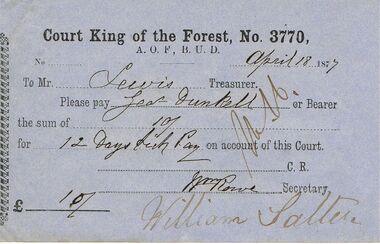 Court King of the Forest, No. 3770,
A. O. F., B. U. D.
No April 18 1877
To Mr. Lewis Treasurer.
Please pay Geo Dunkell or Bearer
the sum of 10/
for 12 Days Sick Pay on account of this Court.
C. R.
Wm Rowe Secretary,
£ 10/
William Salter